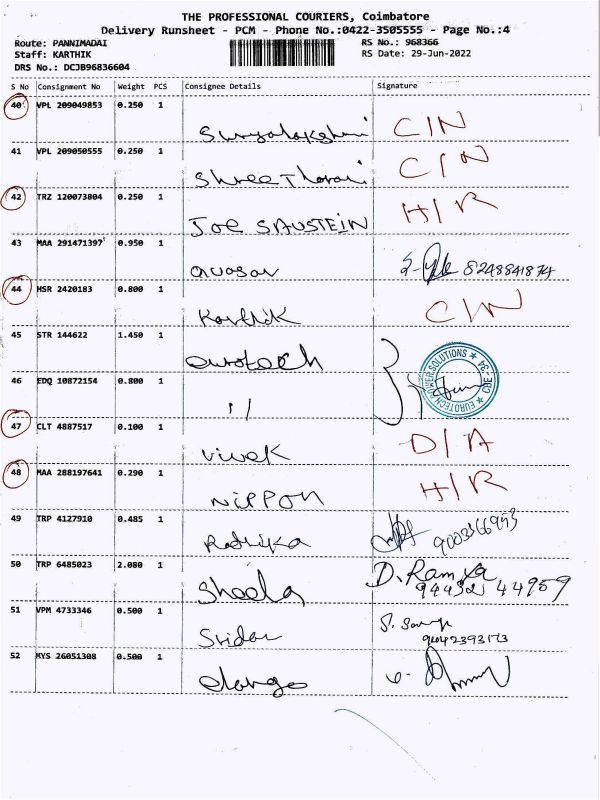 THE PROFESSIONAL COURIERS, Coimbatore
Delivery Runsheet - PCM - Phone No.:0422-3505555 - Page No.:4
Route: PANNIMADAI
RS No.: 968366
Staff: KARTHIK
RS Date: 29-Jun-2022
DRS No.: DCJB96836604
S No Consignment No Weight PCS Consignee Details Signature
40 VPL 209049853 0.250 1
Suryalakshmi CIN
41 VPL 209050555 0.250 1
CIN
42 TRZ 120073804 0.250 1
Joe SAUSTEIN H/R
43 MAA 291471397 0.950 1
Quasar 8248841874
44 HSR 2420183 0.800 1
Karthik CIN
45 STR 144622 1.450 1
eurotech
EUROTECH POWER SOLUTIONS ★ CBE - 34 ★
46 EDQ 10872154 0.800 1
11
47 CLT 4887517 0.100 1
Vivek D/A
48 MAA 288197641 0.290 1
NIPPON H/R
49 TRP 4127910 0.485 1
Radhika 9003366953
50 TRP 6485023 2.080 1
Sheela D. Ramya
44959
51 VPM 4733346 0.500 1
Sridar
52 KYS 26051308 0.500 1
elango